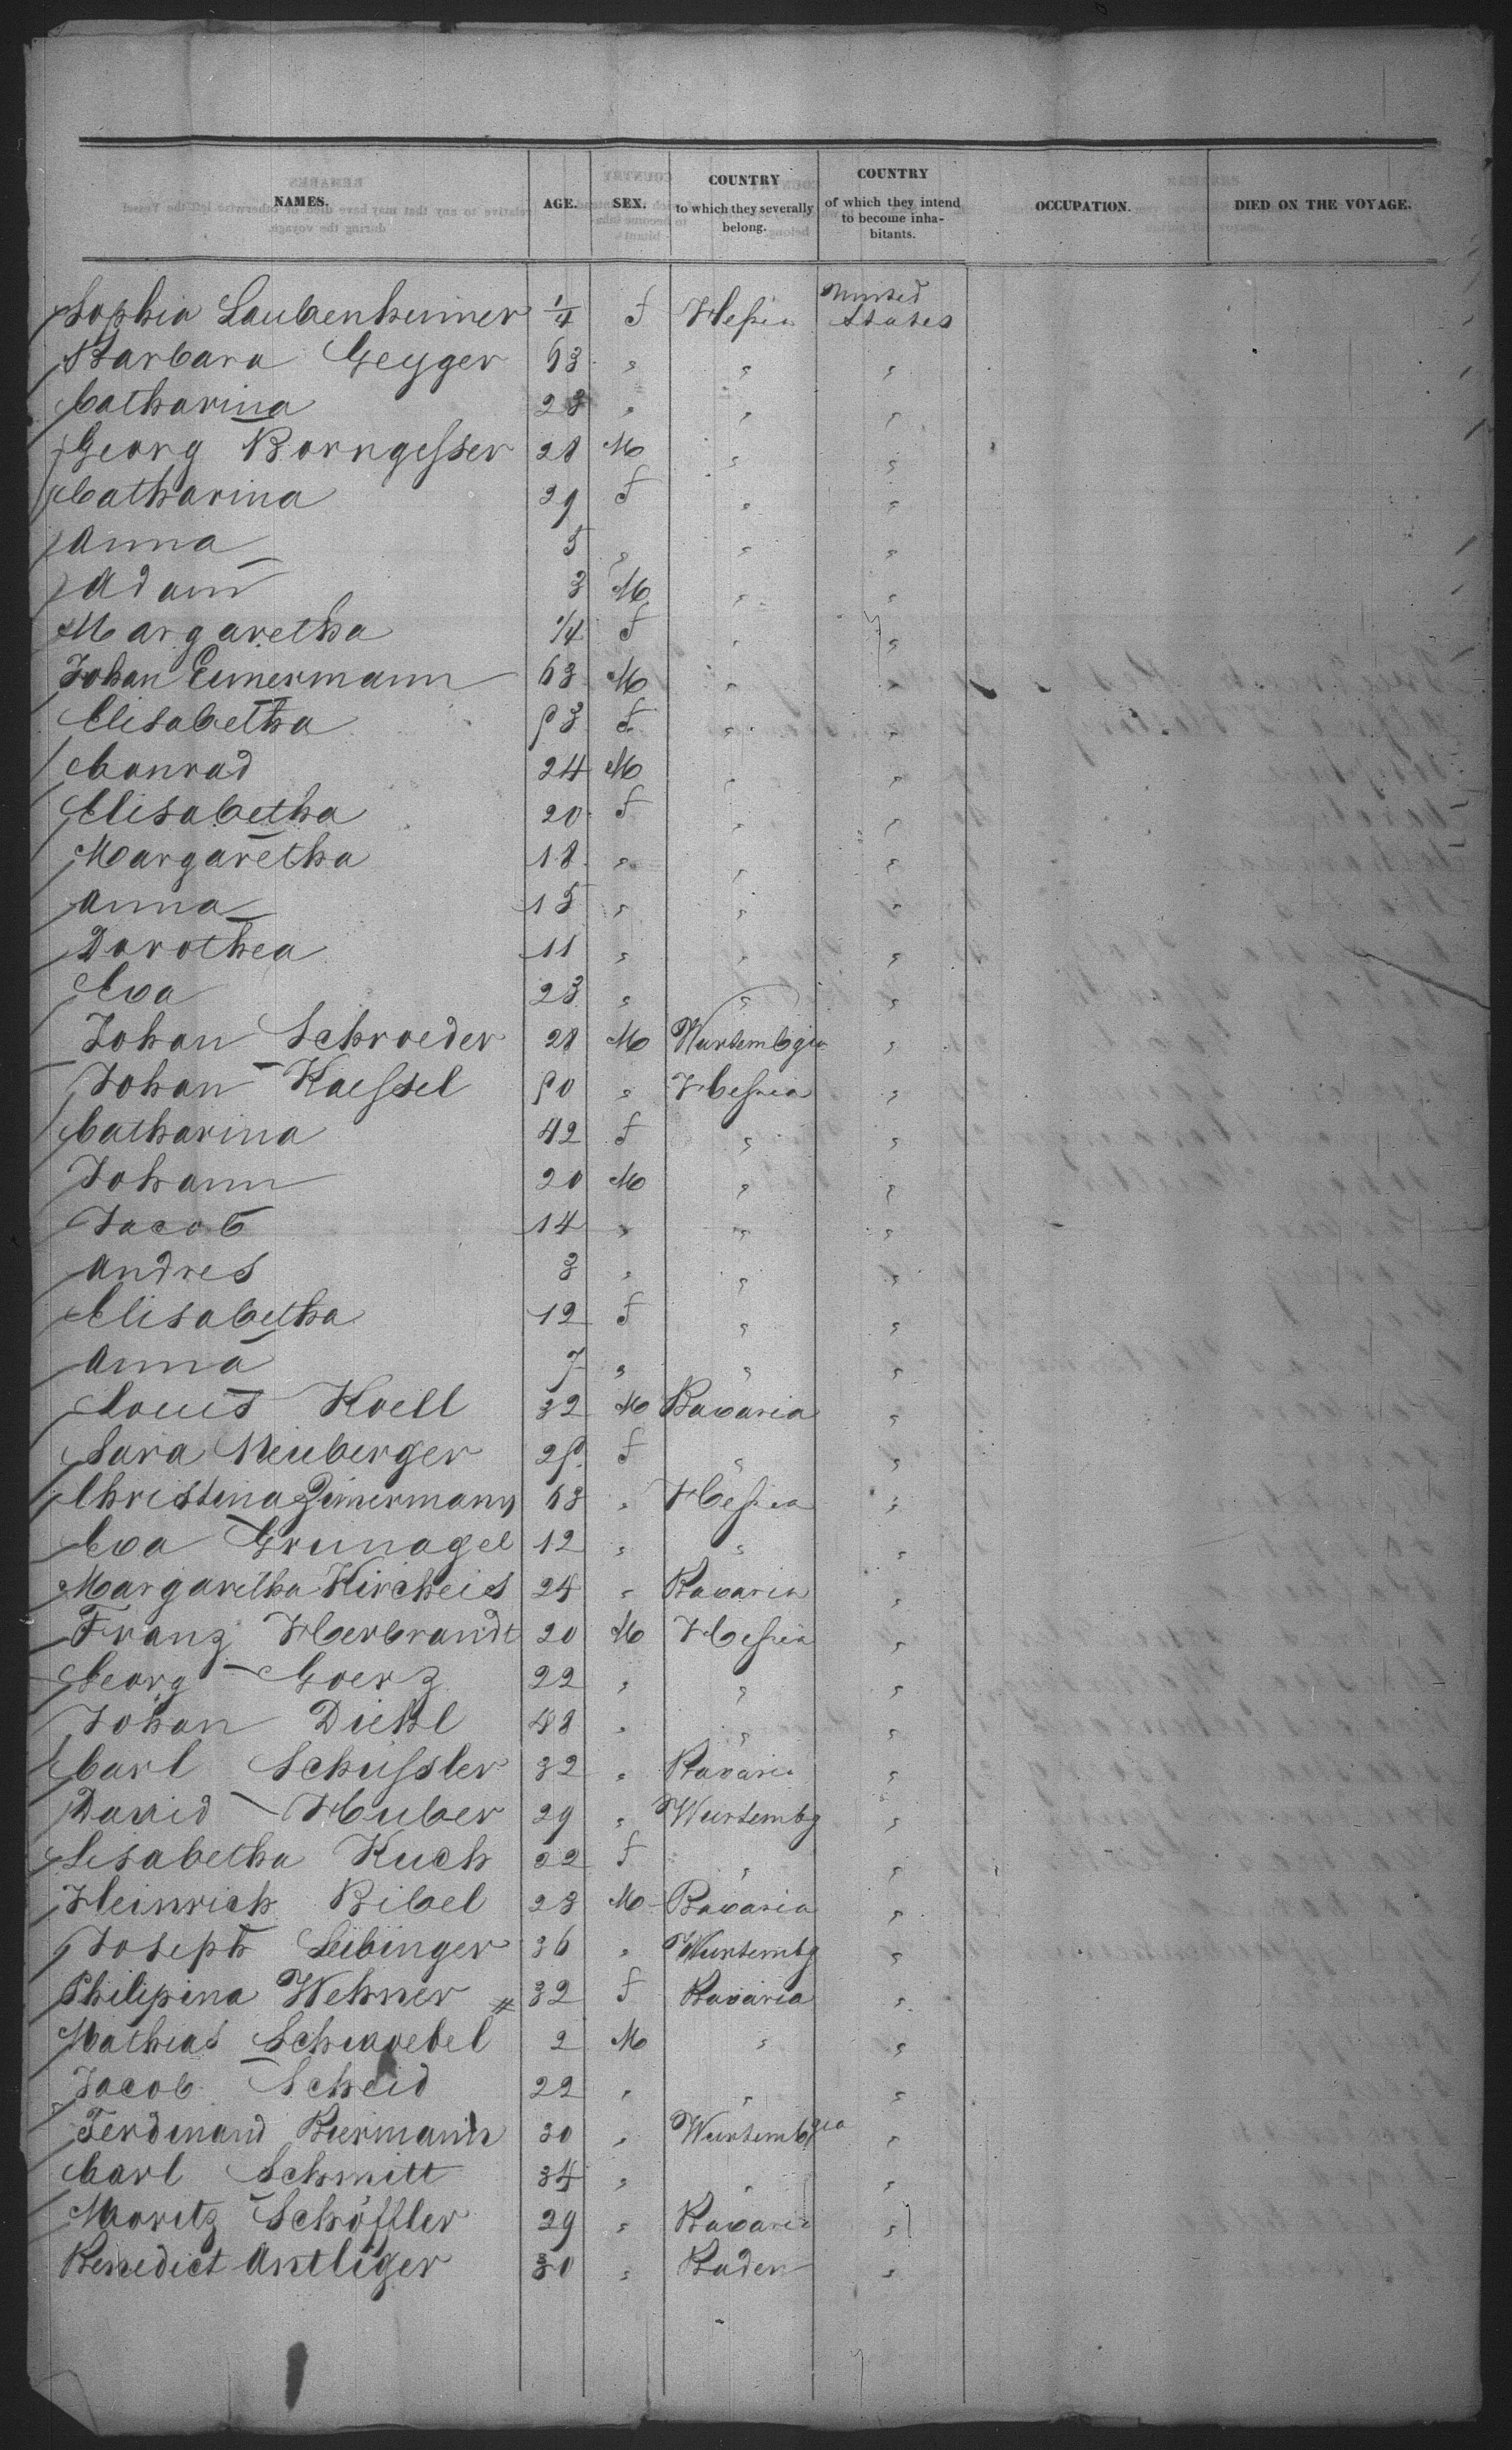 NAMES. AGE. SEX. COUNTRY to which they severally belong. COUNTRY of which they intend to become inhabitants. OCCUPATION. DIED ON THE VOYAGE.
Sophia Laubenheimer 1/4 f Hessia United States
Barbara Geyger 63 " " "
Catharina 23 " " "
Georg Borngesser 28 M " "
Catharina 29 f " "
Anna 5 " " "
Adam 3 M " "
Margaretha 1/4 f " "
Johan Eimermann 63 M " "
Elisabetha 53 f " "
Conrad 24 M " "
Elisabetha 20 f " "
Margaretha 18 " " "
Anna 15 " " "
Dorothea 11 " " "
Eva 23 " " "
Johan Schroeder 28 M Wurtembgia "
Johan Kaessel 50 " Hessia "
Catharina 42 f " "
Johann 20 M " "
Jacob 14 " " "
Andres 3 " " "
Elisabetha 12 f " "
Anna 7 " " "
Louis Koell 32 M Bavaria "
Sara Neuberger 25 f " "
Christina Zimermann 63 " Hessia "
Eva Grunagel 12 " " "
Margaretha Kircheis 24 " Bavaria "
Franz Herbrandt 20 M Hessia "
Georg Goerz 22 " " "
Johan Diehl 48 " " "
Carl Schussler 32 " Bavaria "
David Huber 29 " Wurtembg "
Lisabetha Kuch 22 f " "
Heinrich Bibel 23 M Bavaria "
Joseph Leibinger 36 " Wurtembg "
Philipina Wehner 32 f Bavaria "
Mathias Schwoebel 2 M " "
Jacob Scheid 22 " " "
Ferdinand Biermann 30 " Wurtembgia "
Carl Schmitt 34 " " "
Moritz Schöffler 29 " Bavaria "
Benedict Antliger 30 " Baden "